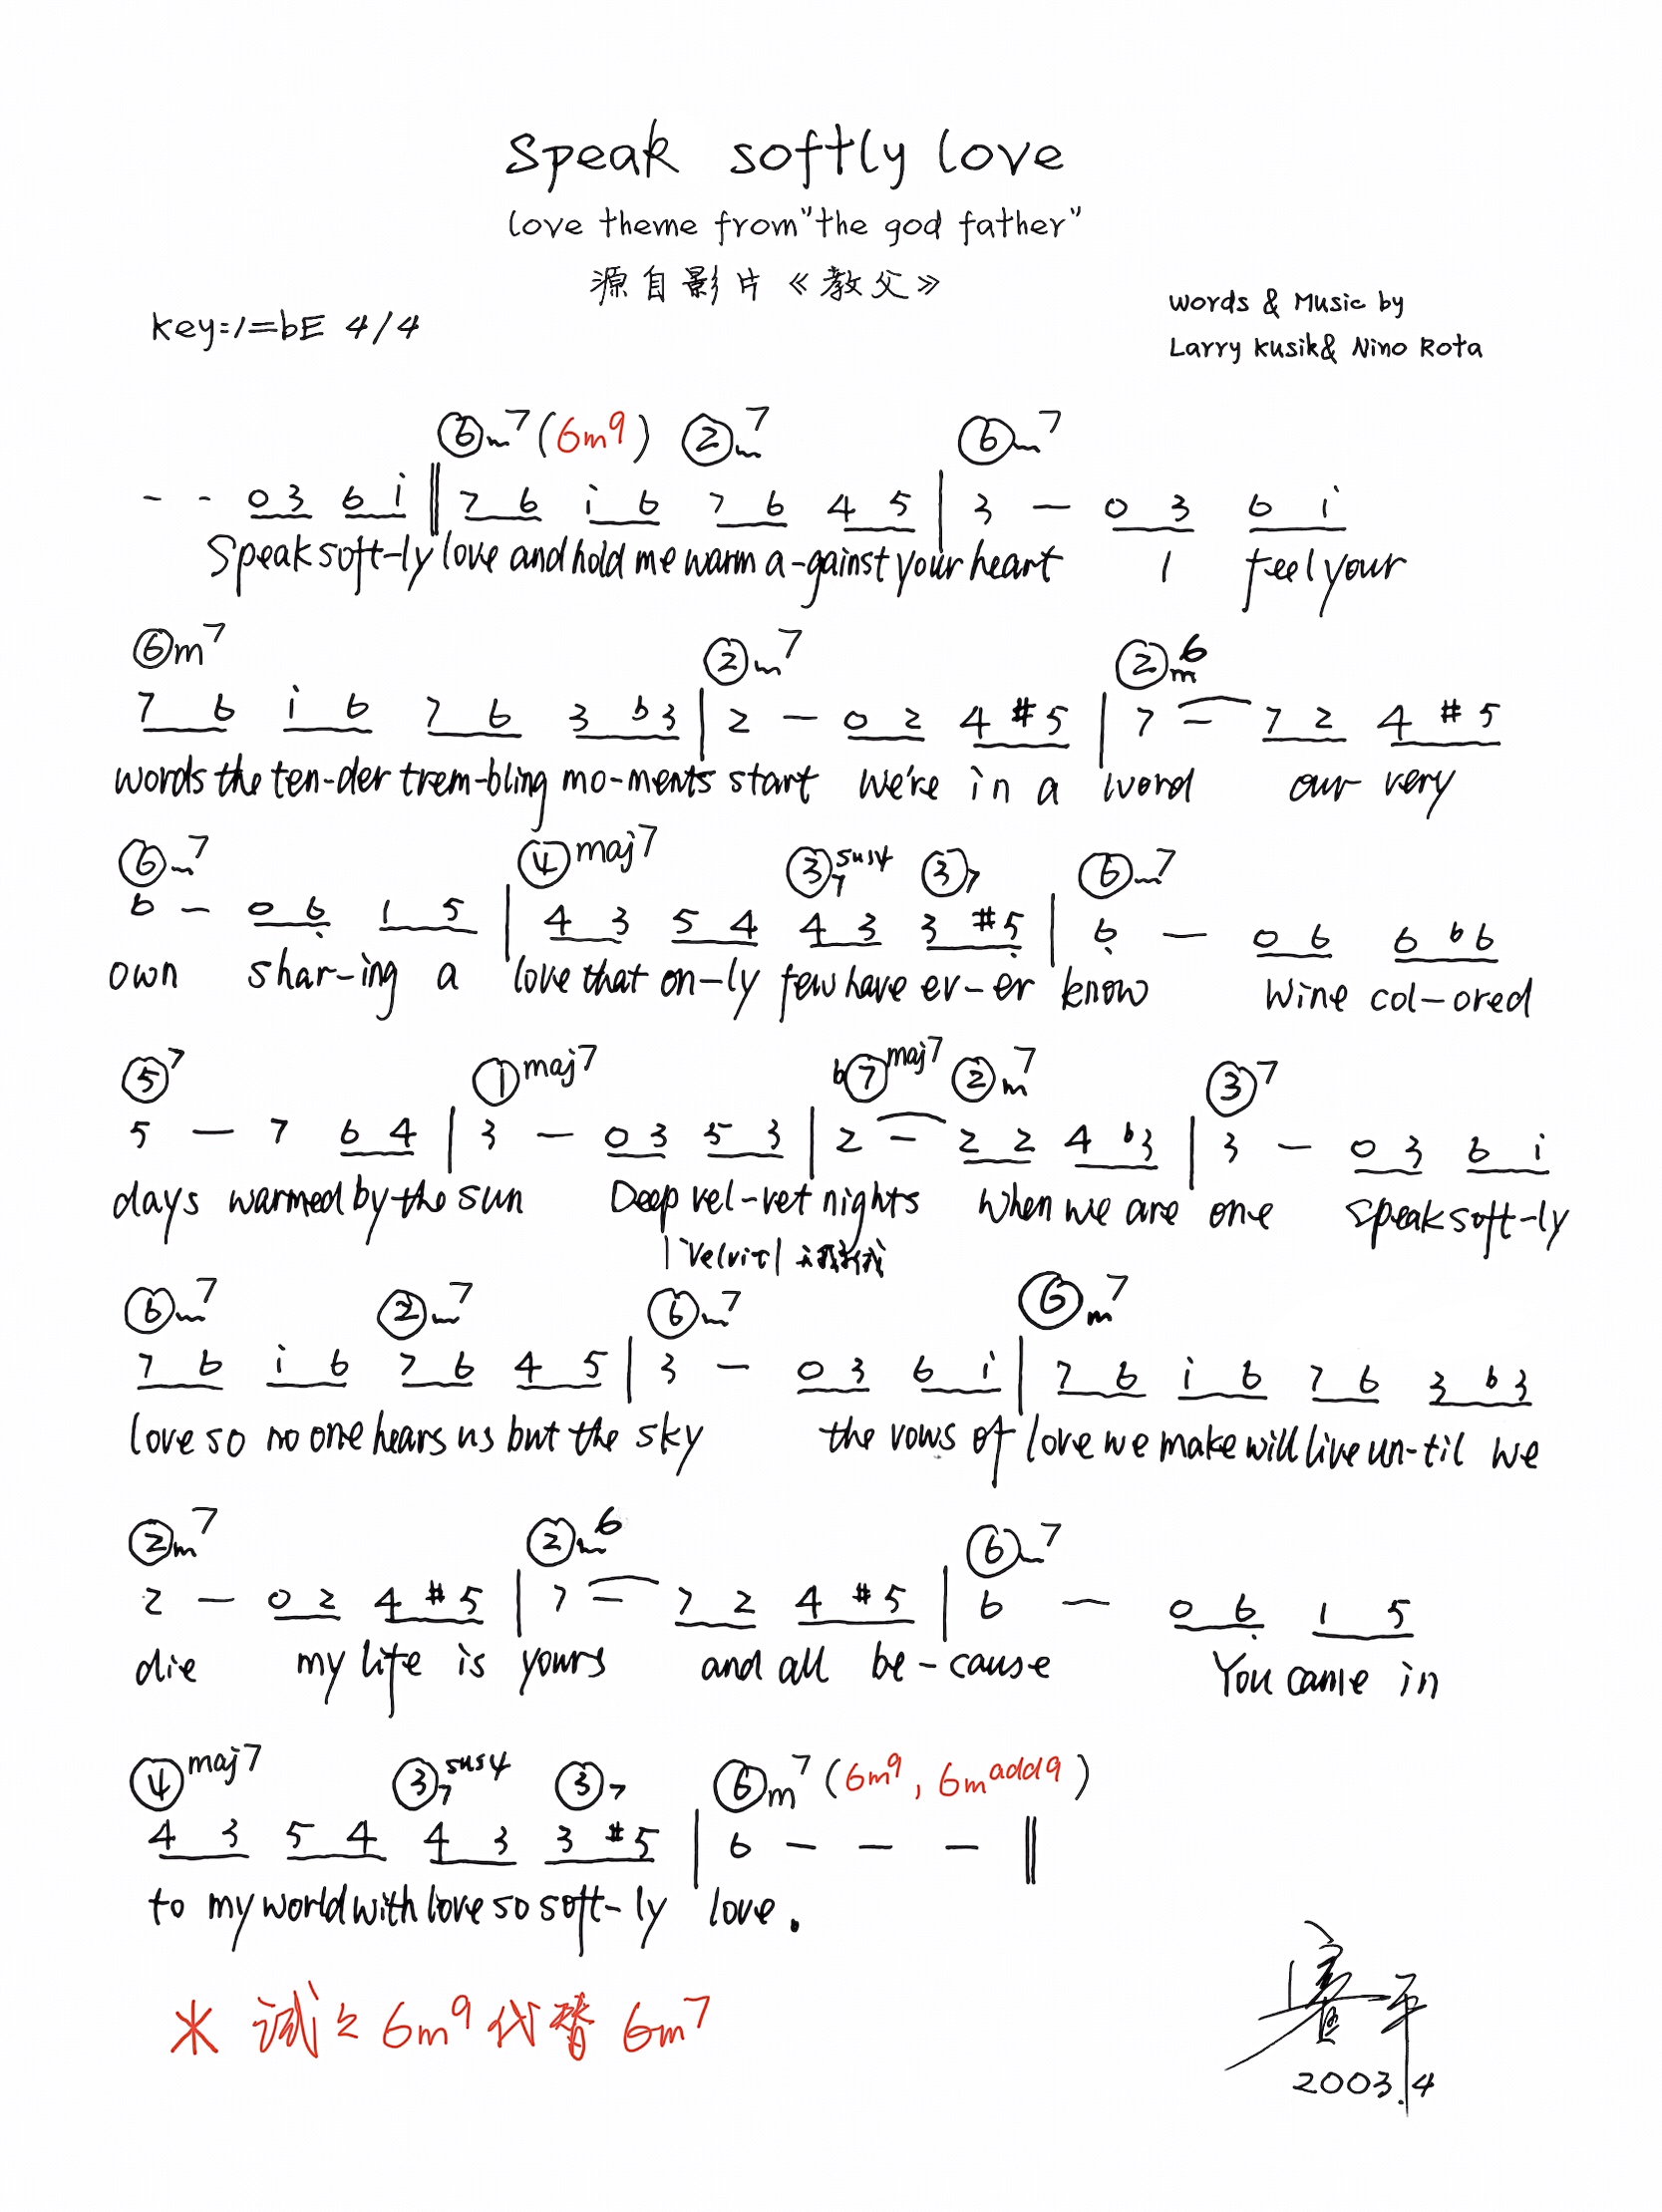 Speak softly love
love theme from "the god father"
源自影片《教父》
Key:1=bE 4/4
Words & Music by
Larry Kusik& Nino Rota
⑥m7 (6m9) ②m7 ⑥m7
- - 0 3 6 i ‖ 7 6 i 6 7 6 4 5 | 3 — 0 3 6 i
Speak soft-ly love and hold me warm a-gainst your heart I feel your
⑥m7 ②m7 ②m6
7 6 i 6 7 6 3 b3 | 2 — 0 2 4 #5 | 7 — 7 2 4 #5
words the ten-der trem-bling mo-ments start We're in a word our very
⑥m7 ④maj7 ③7sus4 ③7 ⑥m7
6 — 0 6̣ 1 5 | 4 3 5 4 4 3 3 #5̣ | 6̣ — 0 6 6 b6
own shar-ing a love that on-ly few have ev-er know Wine col-ored
⑤7 ①maj7 b⑦maj7 ②m7 ③7
5 — 7 6 4 | 3 — 0 3 5 3 | 2 — 2 2 4 b3 | 3 — 0 3 6 i
days warmed by the sun Deep vel-vet nights when we are one speak soft-ly
|ˋVelvit|
⑥m7 ②m7 ⑥m7 ⑥m7
7 6 i 6 7 6 4 5 | 3 — 0 3 6 i | 7 6 i 6 7 6 3 b3
love so no one hears us but the sky the vows of love we make will live un-til we
②m7 ②m6 ⑥m7
2 — 0 2 4 #5 | 7 — 7 2 4 #5 | 6 — 0 6̣ 1 5
die my life is yours and all be-cause You came in
④maj7 ③7sus4 ③7 ⑥m7 (6m9, 6madd9)
4 3 5 4 4 3 3 #5 | 6 — — — ‖
to my world with love so soft-ly love.
* 试之 6m9 代替 6m7
2003.4